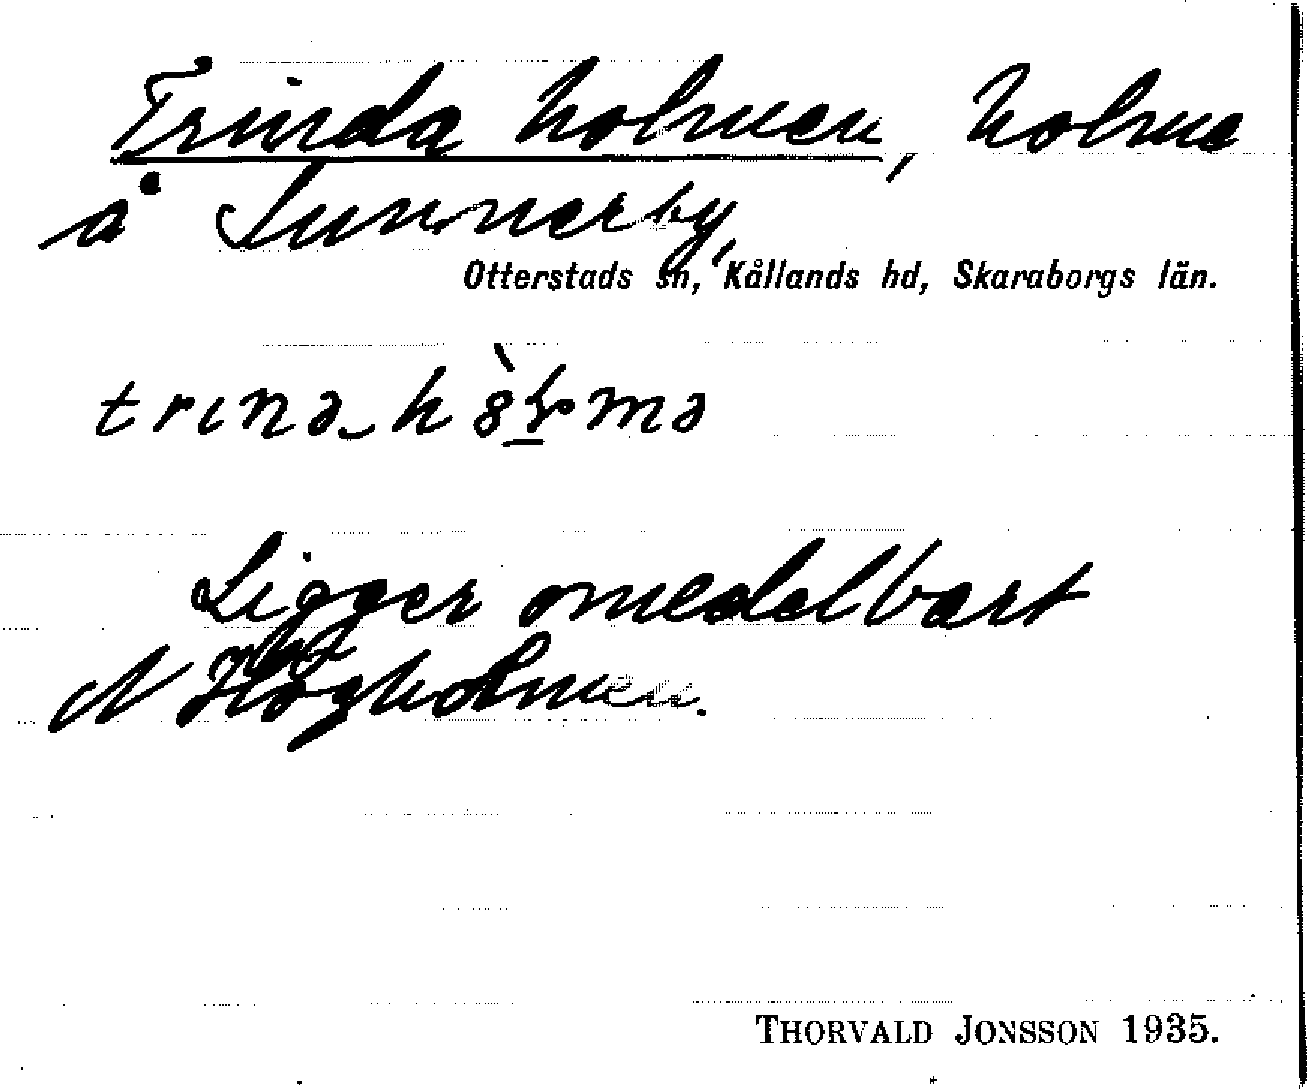 Trinda holmen, holme
å Sunnerby,
Otterstads sn, Kållands hd, Skaraborgs län.
Ligger omedelbart
N Högholmen.
THORVALD JONSSON 1935.